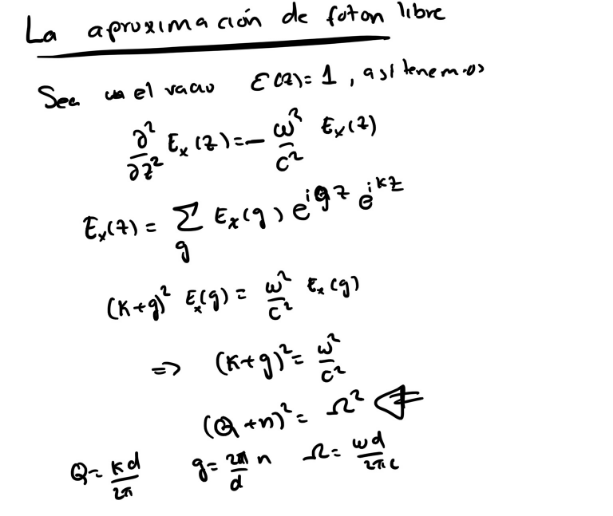 La aproximación de foton libre
Sea en el vacio ε(z)=1, así tenemos
∂²/∂z² Eₓ(z) = - ω²/c² Eₓ(z)
Eₓ(z) = Σ_g Eₓ(g) e^{igz} e^{ikz}
(k+g)² Eₓ(g) = ω²/c² Eₓ(g)
=> (k+g)² = ω²/c²
(Q+n)² = Ω²
Q = kd/2π g = 2π/d n Ω = ωd/2πc